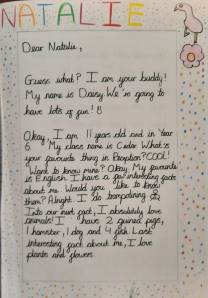 NATALIE
Dear Natalie,
Guess what? I am your buddy!
My name is Daisy. We're going to
have lots of fun! 8
Okay, I am 11 years old and in Year
6. My class name is Cedar. What's
your favourite thing in Reception? COOL!
Want to know mine? Okay. My favourite
is English. I have a few interesting facts
about me. Would you like to know
them? Alright I do trampolining
Into our next fact, I absolutely love
animals! I have 2 guinea pigs,
1 hamster, 1 dog and 4 fish. Last
interesting fact about me, I love
plants and flowers.